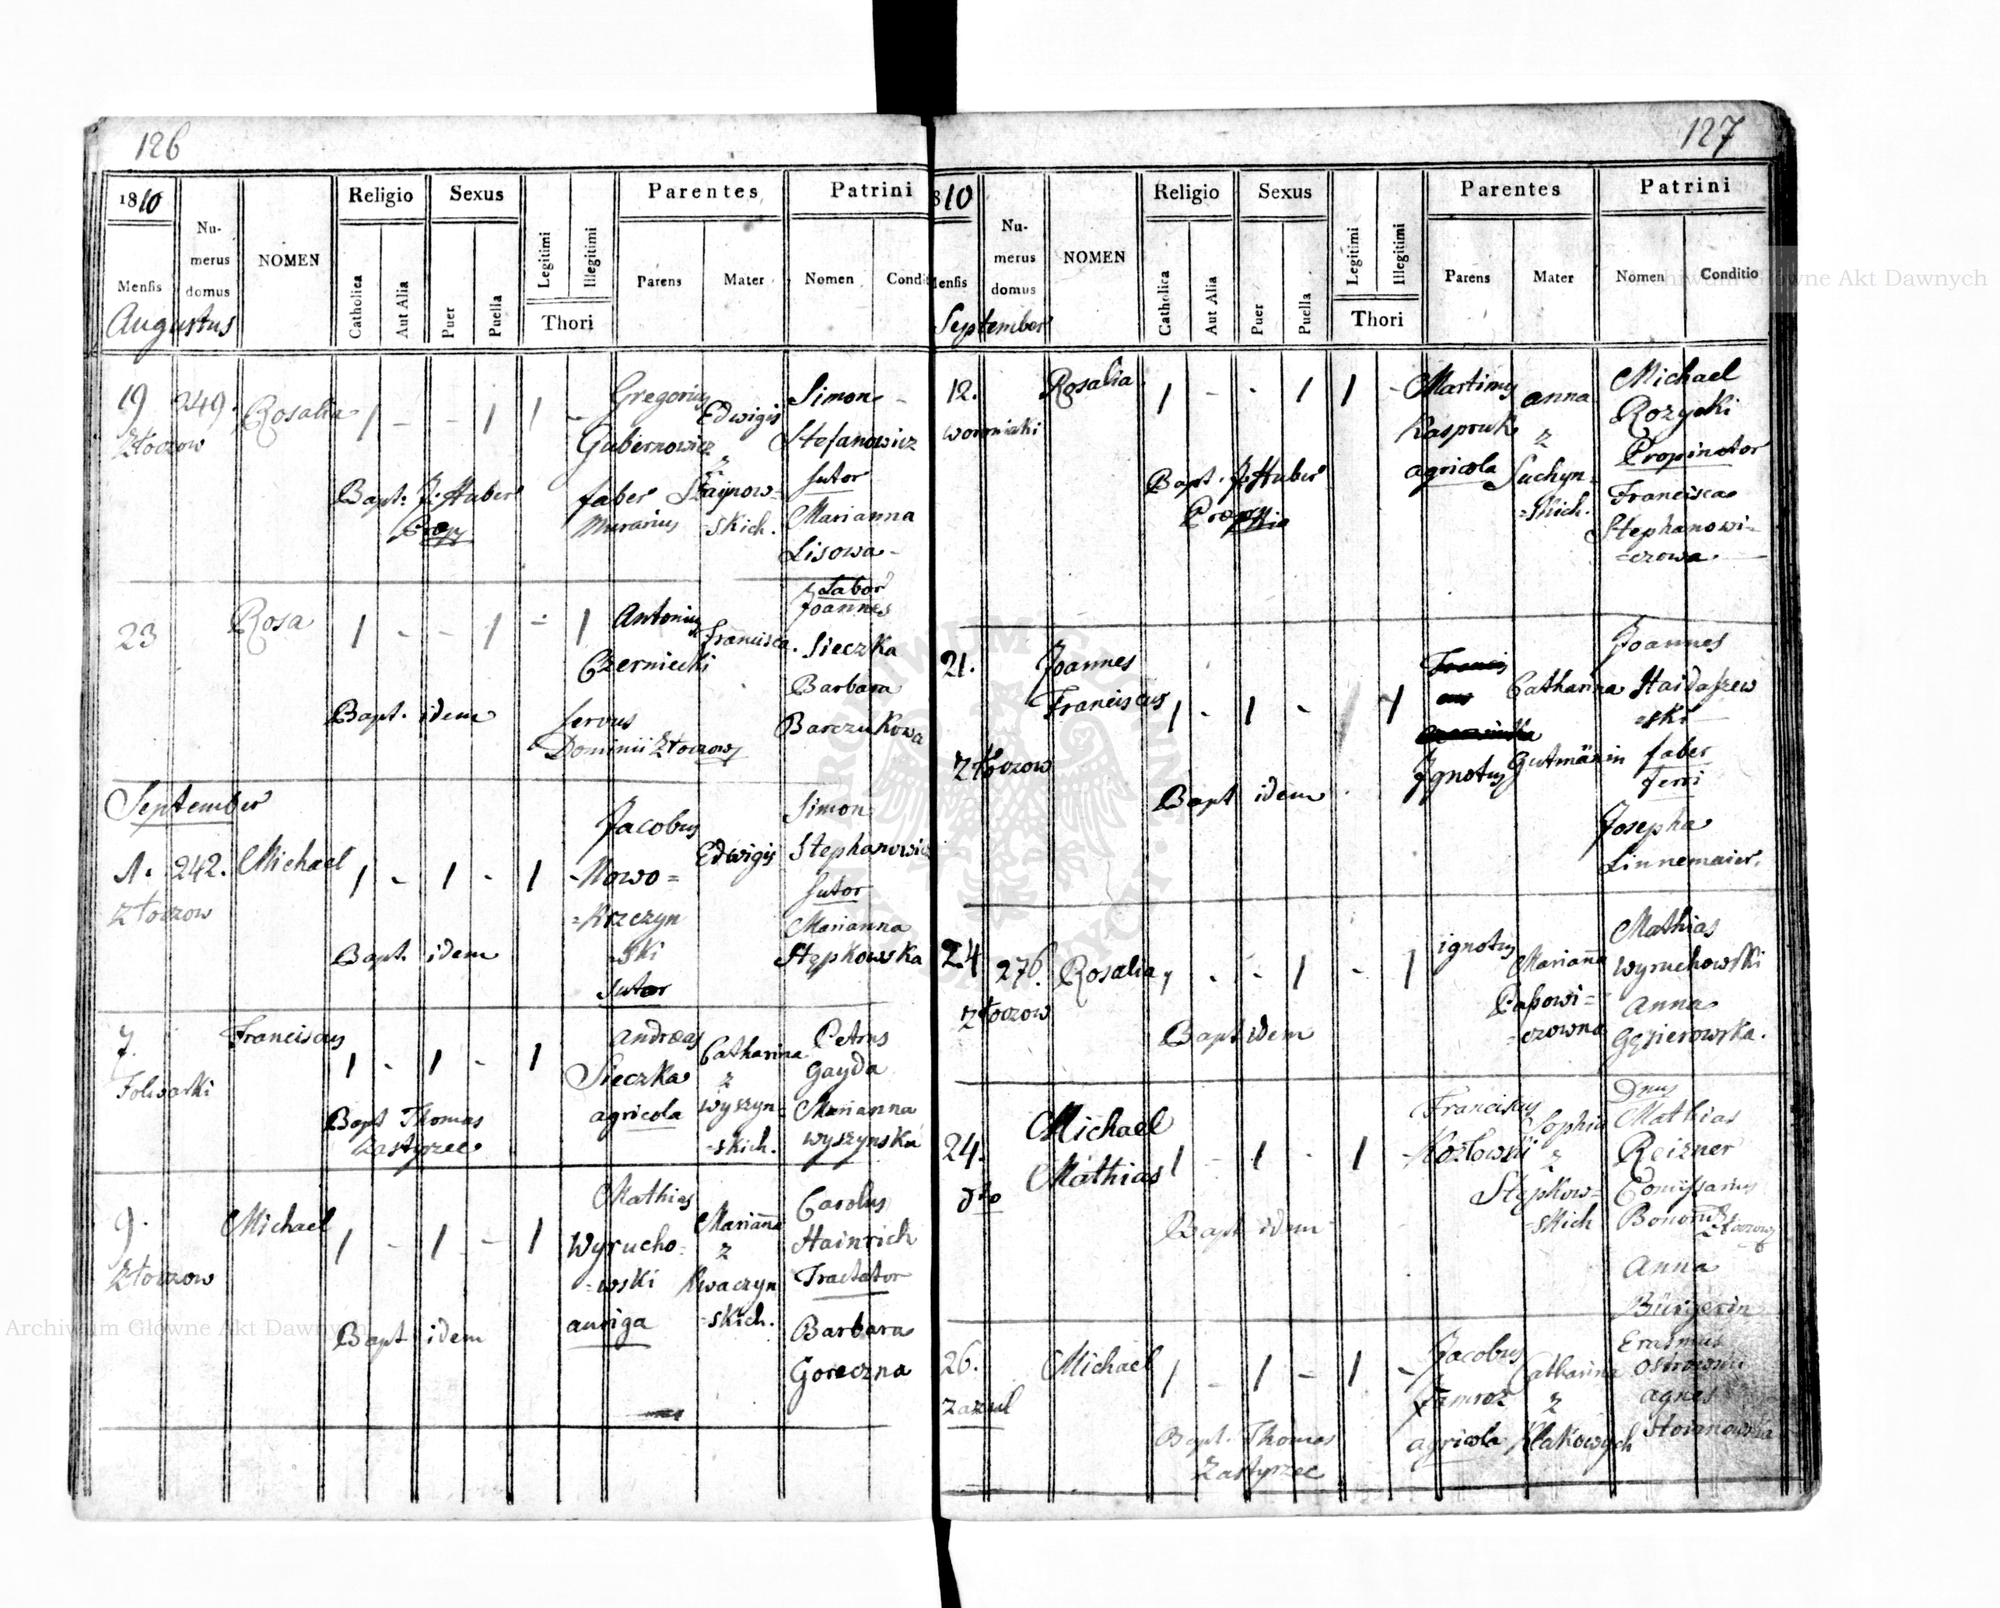 126
1810
Nu-
merus
domus
NOMEN
Religio
Sexus
Legitimi
Illegitimi
Parentes
Patrini
Mensis
Catholica
Aut Alia
Puer
Puella
Thori
Parens
Mater
Nomen
Condi
Augustus
19 249. Rosalia 1 - - 1 1 - Gregorius Edwigis Simon
Złoczow Gubernowicz z Stefanowicz
Sutor
Bapt. J. Huber faber
Murarius -skich. Marianna
Lisowa
23 Rosa 1 - - 1 - 1 Antonius Francisca Joannes
Czerniecki Sieczka
Barbara
Bapt. idem servus Barczukowa
Dominii Złoczow
September
1. 242. Michael 1 - 1 - 1 - Jacobus Edwigis Simon
Złoczow Nowo= Stephanowicz
=krzczyn Sutor
-ski Marianna
Bapt. idem Sutor Stępkowska
7. Franciscus 1 - 1 - 1 Andreas Catharina Petrus
Folwarki Sieczka z Gayda
agricola Wyszyn= Marianna
Bapt Thomas -skich. Wyszynska
Zastyrzec
9. Michael 1 - 1 - 1 Mathias Marianna Carolus
Złoczow Wyrucho= z Hainrich
-wski Kwaczyn Tractator
auriga -skich. Barbara
Bapt idem Goreczna
127
810
Nu-
merus
domus
NOMEN
Religio
Sexus
Legitimi
Illegitimi
Parentes
Patrini
Mensis
Catholica
Aut Alia
Puer
Puella
Thori
Parens
Mater
Nomen
Conditio
September
12. Rosalia 1 - - 1 1 - Martinus Anna Michael
Woroniaki Kaspruk z Rozycki
agricola Suchyn= Propinator
Bapt. J. Huber =skich. Francisca
Stephanowi=
=czowa
21. Joannes Joannes
Franciscus 1 - 1 - 1 Catharina Haidaszew
-ski
Złoczow Ignotus Gutmänin faber
Bapt idem ferri
Josepha
Linnemaier.
24 276. Rosalia 1 - - 1 - 1 ignotus Marianna Mathias
Złoczow Wyruchowski
-czowna Anna
Bapt idem Gęsierowska.
24. Michael Franciscus Sophia Dnus
dto Mathias 1 - 1 - 1 - Kozłowski z Mathias
Stępkow= Reizner
-skich Comissarius
Bapt idem Bonorum Złoczow
Anna
Bürgerin
26. Michael 1 - 1 - 1 - Jacobus Catharina Erasmus
Zazul Jamroz z Ostrowski
agricola Agnes
Bapt. Thomas
Zastyrzec
Archiwum Główne Akt Dawnych
Archiwum Główne Akt Dawnych
ARCHIWUM GŁÓWNE AKT DAWNYCH